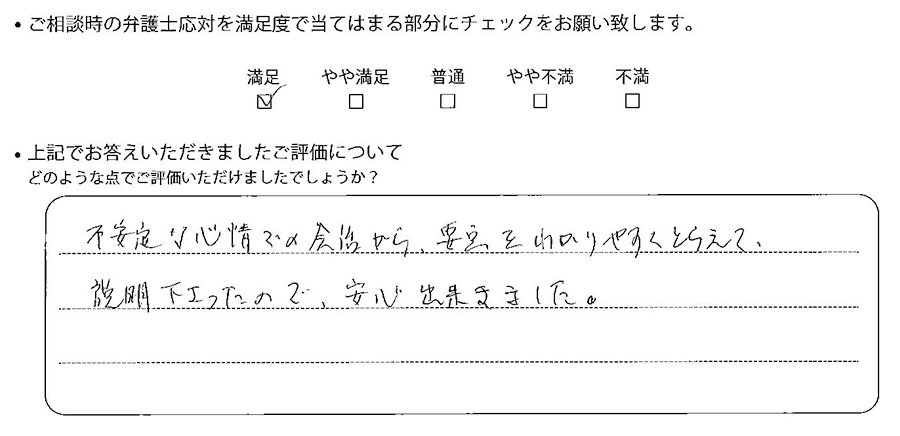 ・ご相談時の弁護士応対を満足度で当てはまる部分にチェックをお願い致します。
満足 やや満足 普通 やや不満 不満
・上記でお答えいただきましたご評価について
どのような点でご評価いただけましたでしょうか？
不安定な心情での会話から、要点をわかりやすくとらえて、
説明下さったので、安心出来ました。